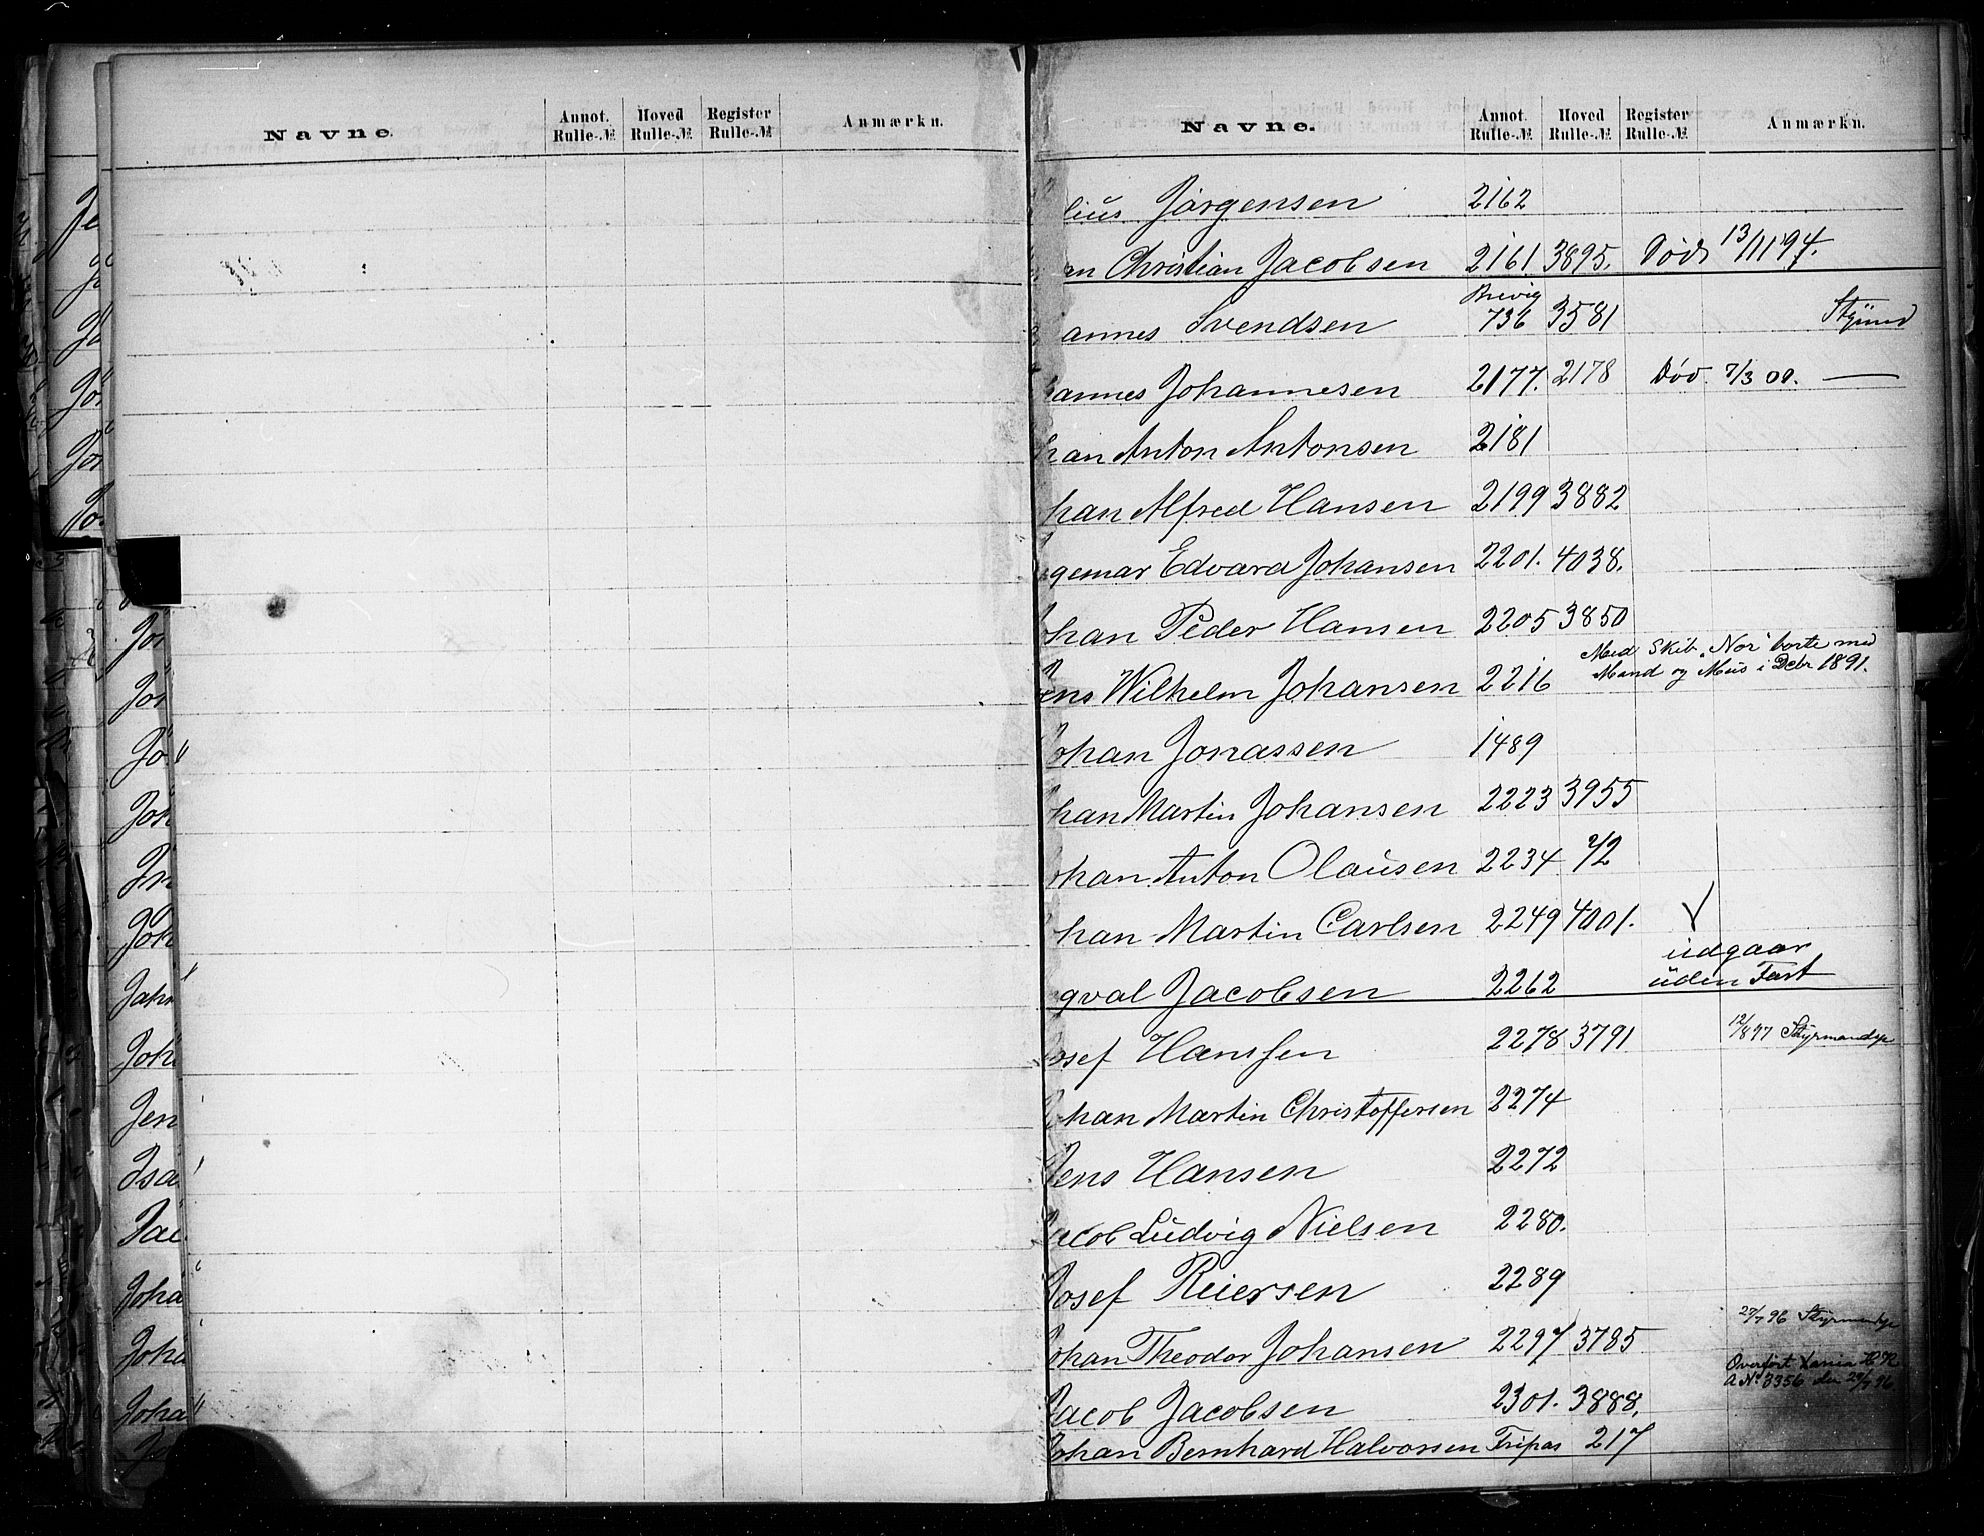 Navne. Annot. Rulle-№ Hoved Rulle-№ Register Rulle-№ Anmærkn.
Navne. Annot. Rulle-№ Hoved Rulle-№ Register Rulle-№ Anmærkn.
lius Jörgensen 2162
an Christian Jacobsen 2161 3895. Död 13/11 94.
annes Svendsen Brevig 736 3581
annes Johannesen 2177. 2178 Död 7/3 00. —
han Anton Antonsen 2181
han Alfred Hansen 2199 3882
gemar Edvard Johansen 2201. 4038.
ohan Peder Hansen 2205 3850
Med Skib „Nor" borte med
Mand og Mus i Debr 1891.
ens Wilhelm Johansen 2216
ohan Jonassen 1489
han Martin Johansen 2223 3955
ohan Anton Olausen 2234 72
han Martin Carlsen 2249 4001.
udgaar
gval Jacobsen 2262 uden Fart
osef Hanssen 2278 3791 12/8 97
ohan Martin Christoffersen 2274
Jens Hansen 2272
Jacob Ludvig Nielsen 2280.
Josef Reiersen 2289
Johan Theodor Johansen 2297 3785
Overfört
A No 3356 den
Jacob Jacobsen 2301. 3888.
Johan Bernhard Halvorsen 217
Je
Jör
Jor
Jor
Jor
Jö
Joh
Joh
Joh
Jen
Isa
Joha
Joha
Joha